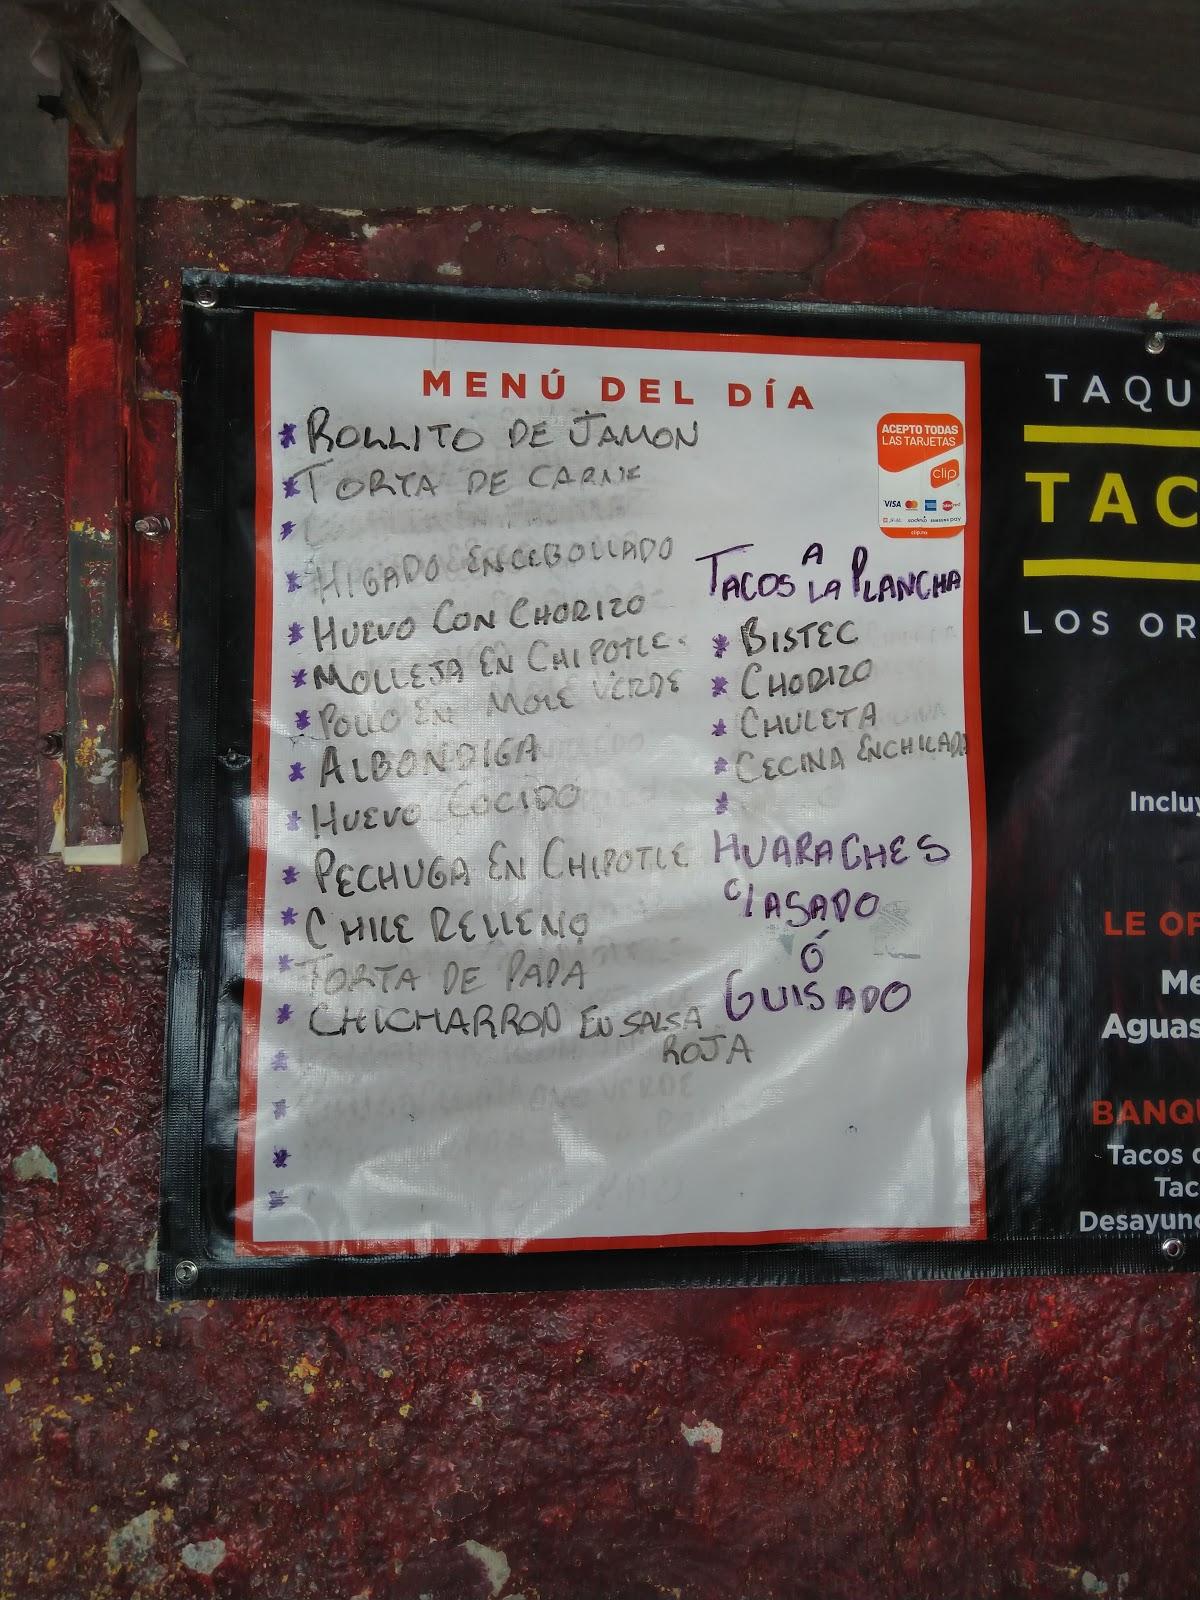 MENÚ DEL DÍA
* ROLLITO DE JAMON
* TORTA DE CARNE
*
* HIGADO ENCEBOLLADO
* HUEVO CON CHORIZO
* MOLLEJA EN CHIPOTLE
* POLLO EN MOLE VERDE
* ALBONDIGA
* HUEVO COCIDO
* PECHUGA EN CHIPOTLE
* CHILE RELLENO
* TORTA DE PAPA
* CHICHARRON EN SALSA
ROJA
ACEPTO TODAS
LAS TARJETAS
clip
VISA
clip.mx
TACOS A LA PLANCHA
* BISTEC
* CHORIZO
* CHULETA
* CECINA ENCHILADA
*
HUARACHES
C/ASADO
Ó
GUISADO
TAQU
TAC
LOS OR
Incluy
LE OF
Me
Aguas
BANQU
Tacos d
Tac
Desayuno